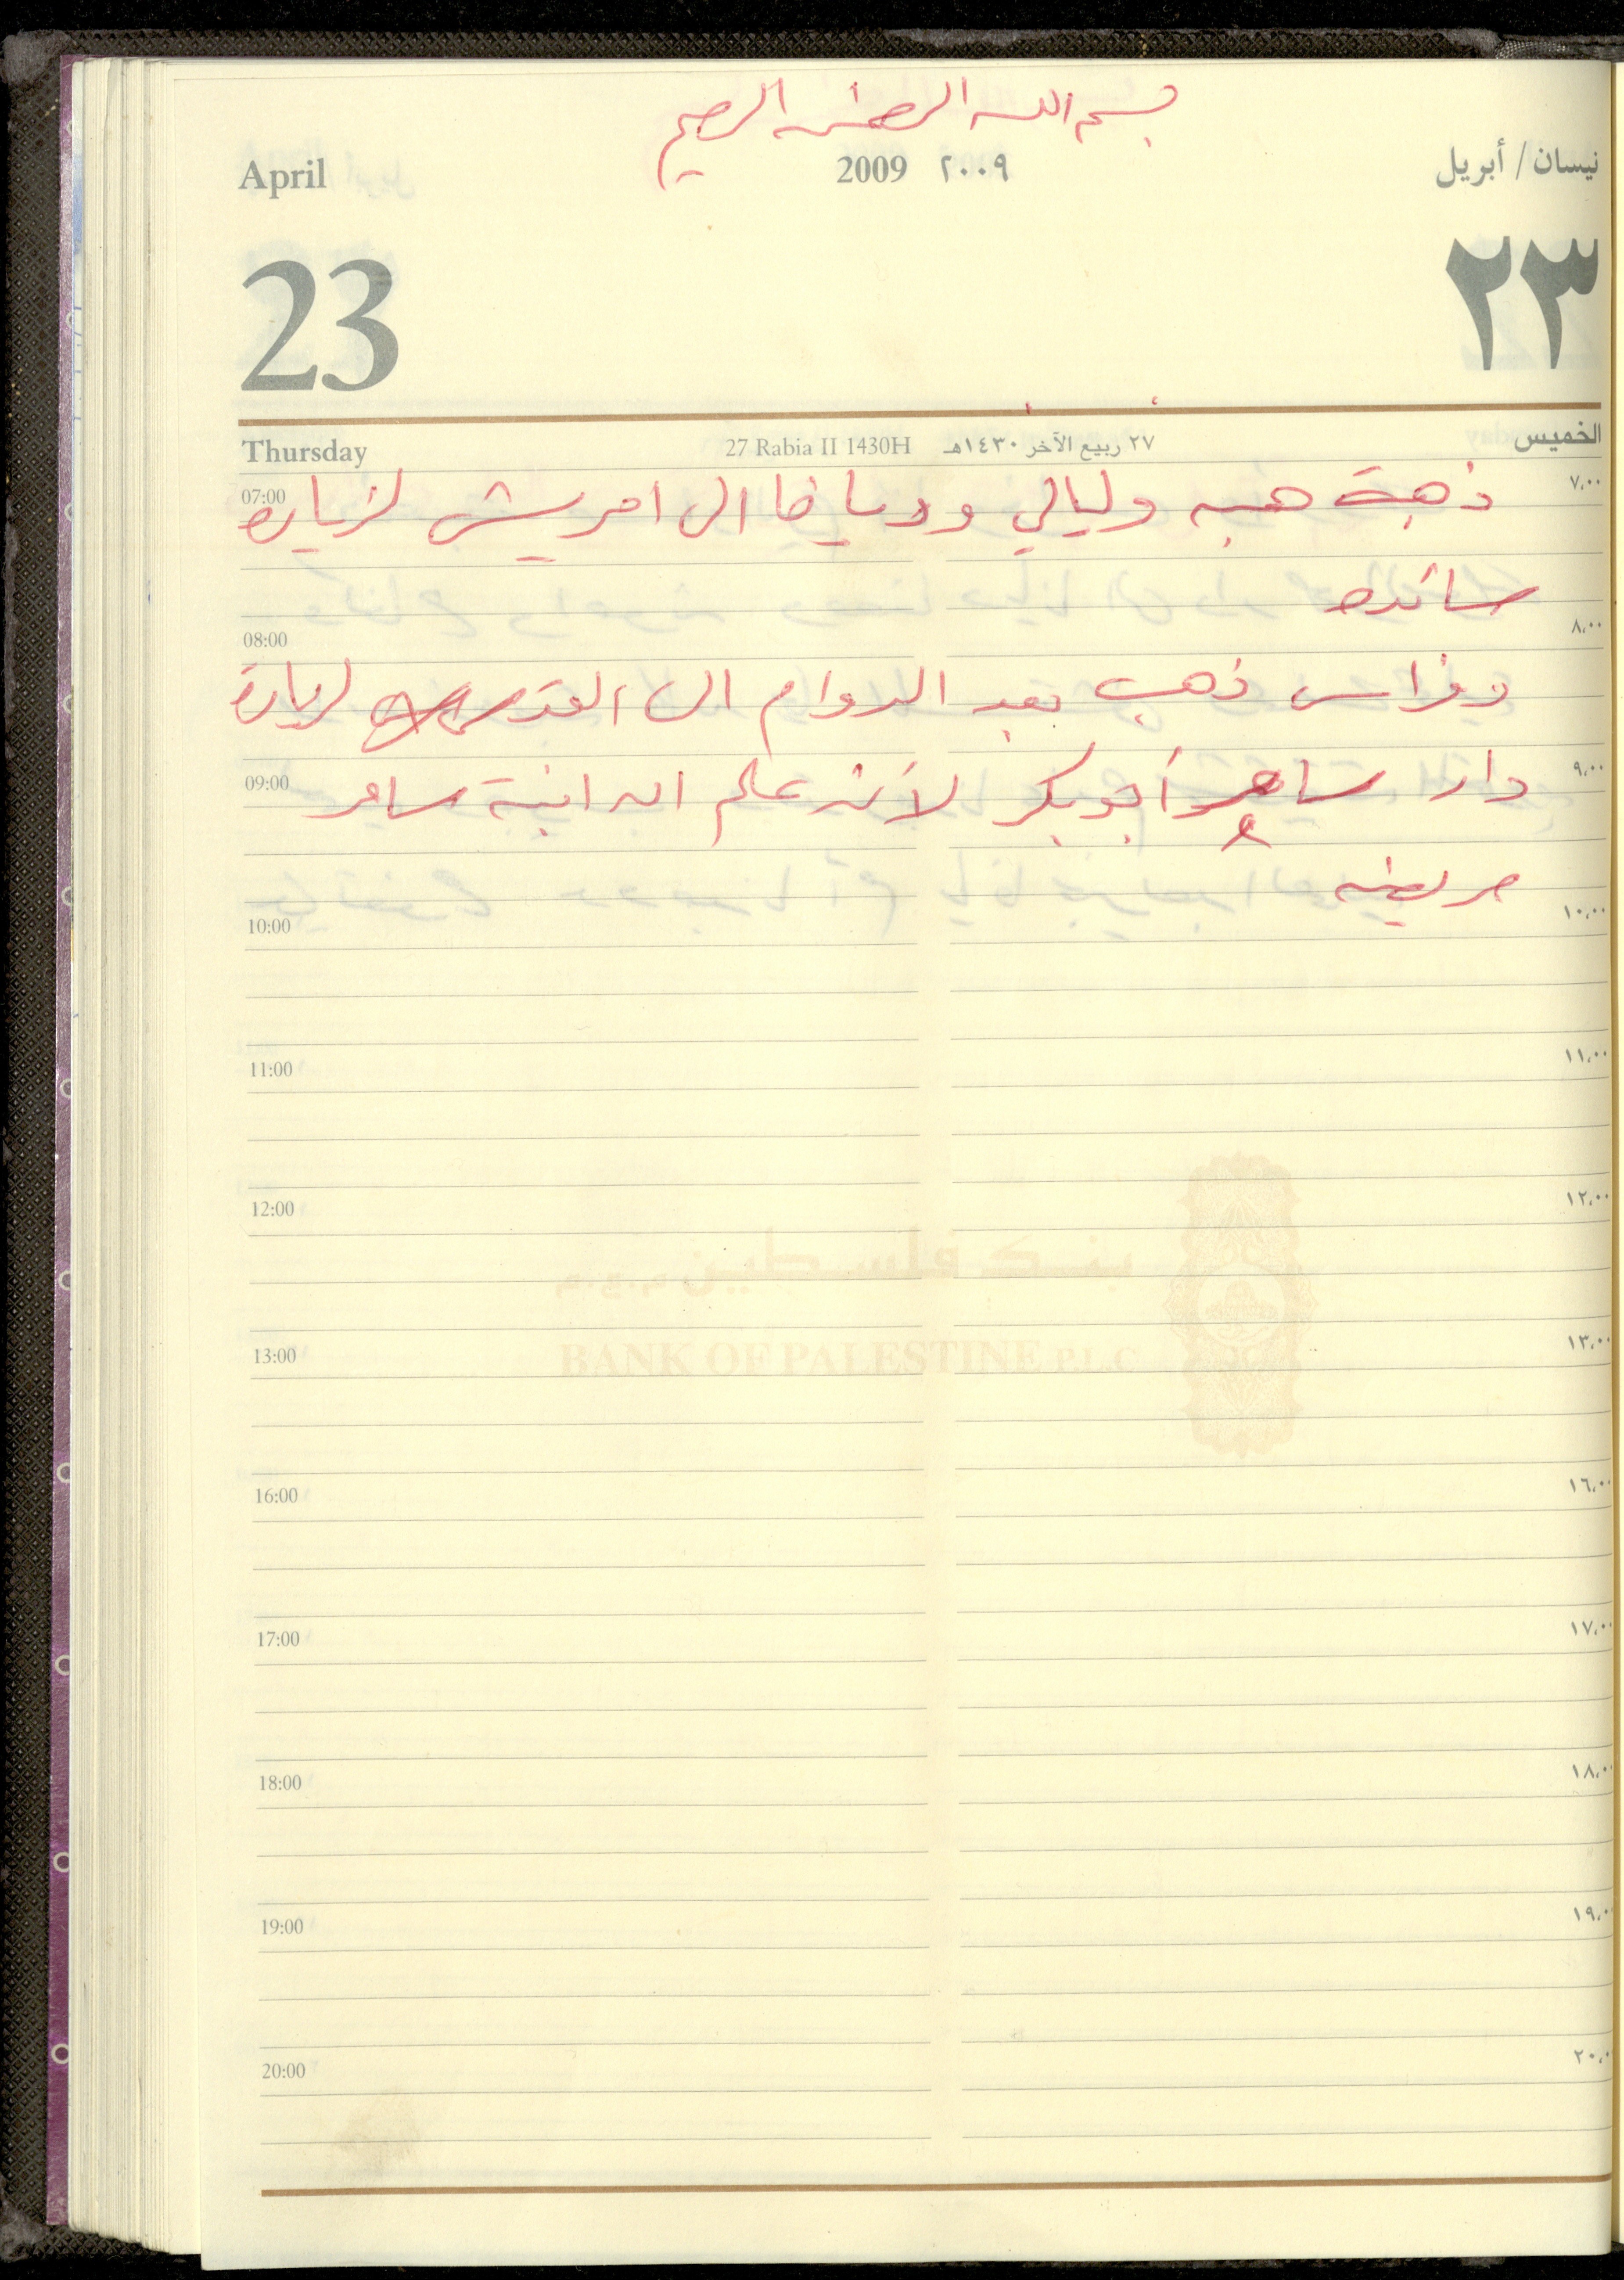 بسم الله الرحمن الرحيم
April 2009 ٢٠٠٩ نيسان / أبريل
23 ٢٣
Thursday 27 Rabia II 1430H ٢٧ ربيع الآخر ١٤٣٠هـ الخميس
07:00 ٧,٠٠
ذهبة هبه وليالي ودينا الى امريش لزياره
سائده
08:00 ٨,٠٠
وفراس ذهب بعد الدوام الى القدس لزيارة
09:00 ٩,٠٠
دار ساهر أبو بكر لأنه علم ان ابنة سامر
مريضه
10:00 ١٠,٠٠
11:00 ١١,٠٠
12:00 ١٢,٠٠
بنك فلسطين
BANK OF PALESTINE P.L.C
13:00 ١٣,٠٠
16:00 ١٦,٠٠
17:00 ١٧,٠٠
18:00 ١٨,٠٠
19:00 ١٩,٠٠
20:00 ٢٠,٠٠